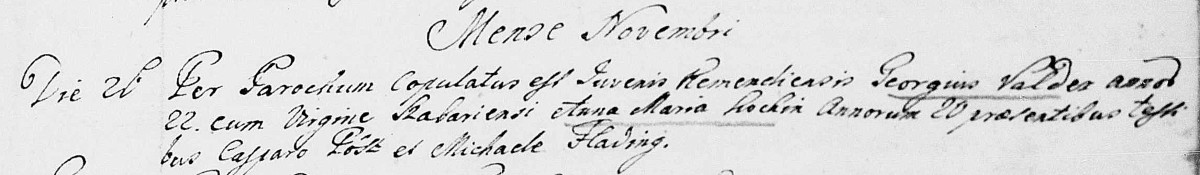 Mense Novembri
Die 26 Per Parochum copulatus est Juvenis Kemendiensis Georgius Valder annor
22. cum Virgine Kabariensi Anna Maria Hochin Annorum 20 præsentibus testi
bus Casparo Pöst et Michaele Flading.